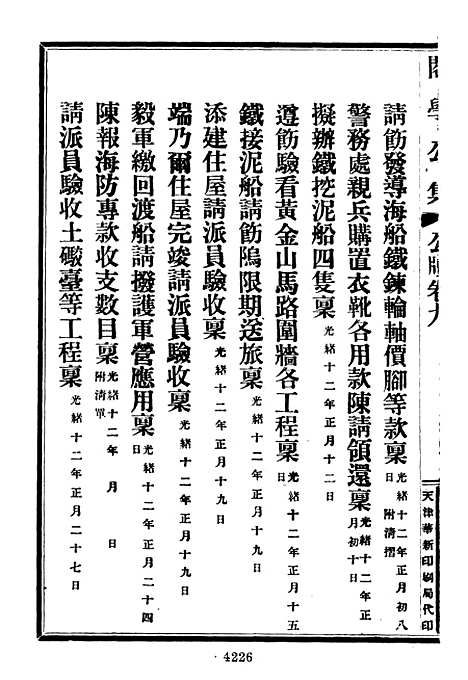 閣學公集 公牘卷九
天津華新印刷局代印
請飭發導海船鐵鍊輪軸價腳等款稟 光緒十二年正月初八日 附清摺
警務處親兵購置衣靴各用款陳請領還稟 光緒十二年正月初十日
擬辦鐵挖泥船四隻稟 光緒十二年正月十二日
遵飭驗看黃金山馬路圍牆各工程稟 光緒十二年正月十五日
鐵接泥船請飭隖限期送旅稟 光緒十二年正月十九日
添建住屋請派員驗收稟 光緒十二年正月十九日
端乃爾住屋完竣請派員驗收稟 光緒十二年正月十九日
毅軍繳回渡船請撥護軍營應用稟 光緒十二年正月二十四日
陳報海防專款收支數目稟 光緒十二年 月 日 附清單
請派員驗收土礮臺等工程稟 光緒十二年正月二十七日
4226